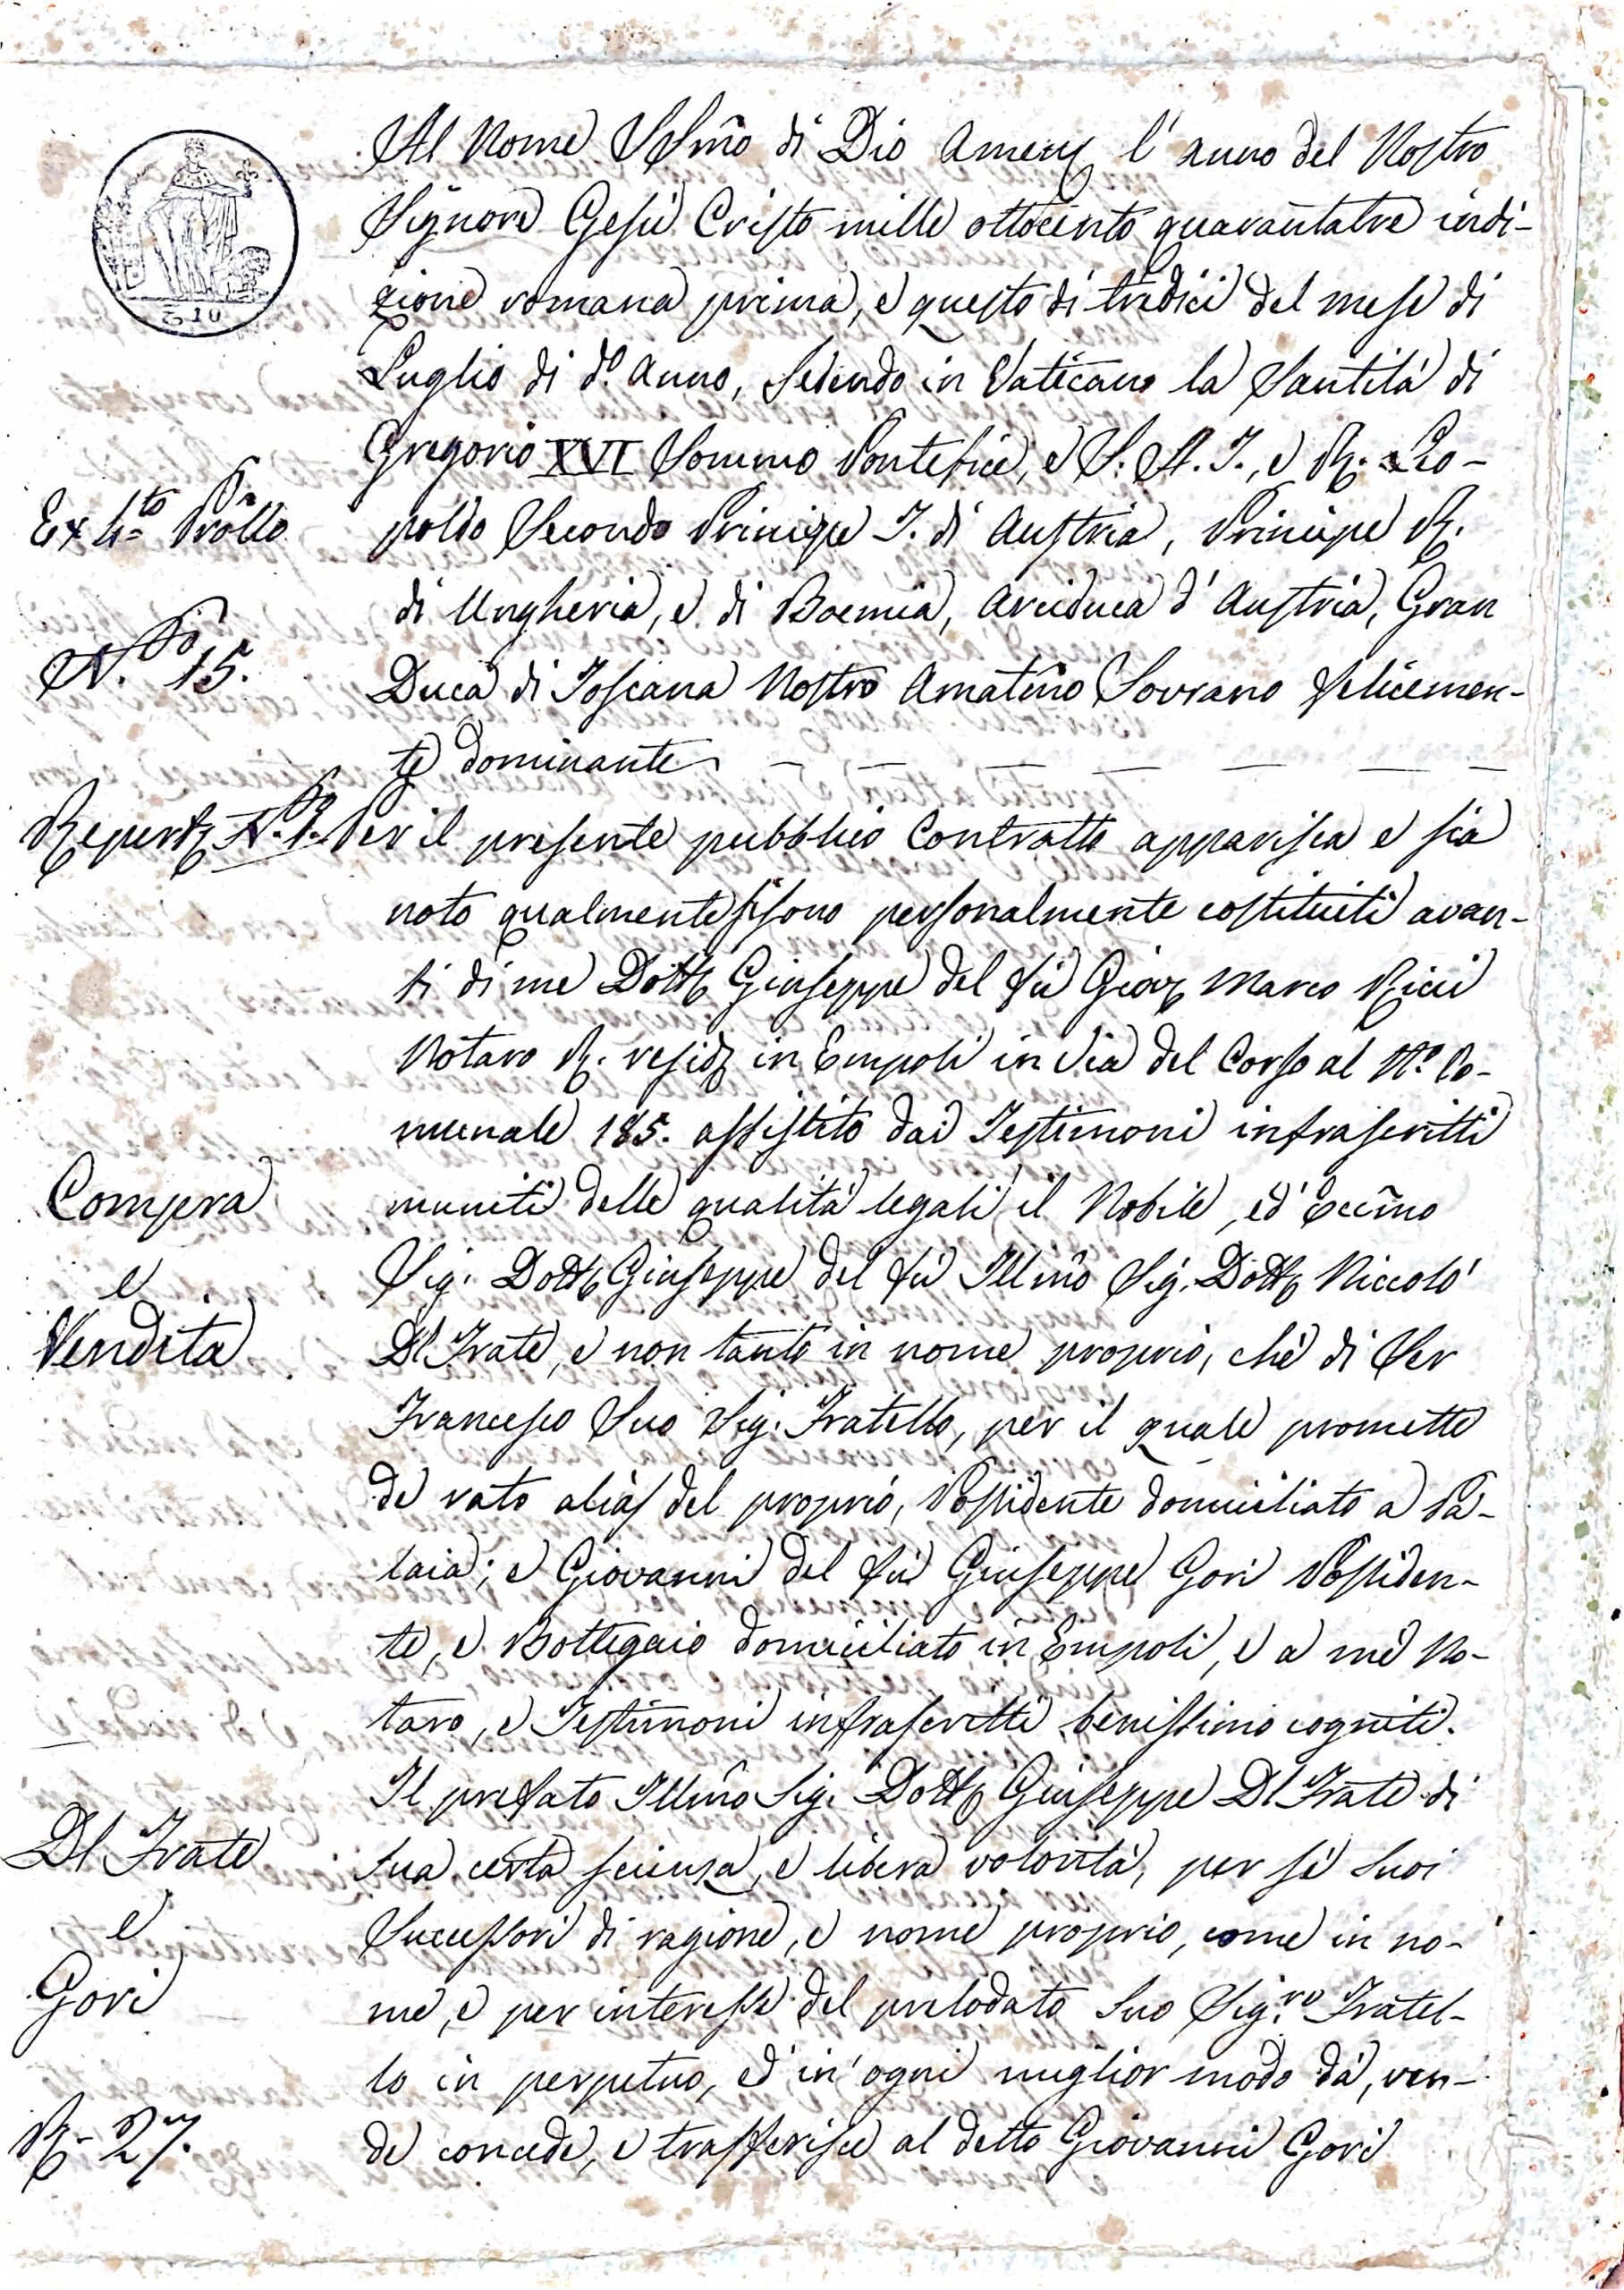 Al Nome SSmõ di Dio Amen l'anno del Nostro
Signore Gesù Cristo mille ottocento quarantatre indi-
zione romana prima, e questo dì tredici del mese di
Luglio di d.º Anno, sedendo in Vaticano la Santità di
Gregorio XVI Sommo Pontefice, e S. A. I., e R. Leo-
Ex 4.to Prõllo
poldo Secondo Principe I. di Austria, Principe R.
di Ungheria, e di Boemia, Arciduca d'Austria, Gran
N.º 15.
Duca di Toscana Nostro Amatĩno Sovrano felicemen-
te dominante
Repert. N.º
Per il presente pubblico Contratto apparisca e sia
noto qualmente si sono personalmente costituiti avan-
ti di me Dott. Giuseppe del fù Giov. Marco Ricci
Notaro R. resid. in Empoli in Via del Corso al N.º Co-
munale 185. assistito dai Testimoni infrascritti
Compra
muniti delle qualità legali il Nobile, ed' Eccm̃o
e
Sig. Dott. Giuseppe del fù Illm̃o Sig. Dott. Niccolò
Vendita
Dl Frate, e non tanto in nome proprio, che di Ser
Francesco Suo Sig. Fratello, per il quale promette
de rato alias del proprio, Possidente domiciliato a Pa-
laia; e Giovanni del fù Giuseppe Gori Possiden-
te, e Bottegaio domiciliato in Empoli, e a me No-
taro, e Testimoni infrascritti benissimo cogniti.
Il prefato Illm̃o Sig. Dott. Giuseppe Dl Frate di
Dl Frate
sua certa scienza, e libera volontà, per sé suoi
e
Successori di ragione, e nome proprio, come in no-
Gori
me, e per interesse del prelodato Suo Sig.re Fratel-
lo in perpetuo, ed' in' ogni miglior modo dà, ven-
R. 27.
de concede, e trasferisce al detto Giovanni Gori